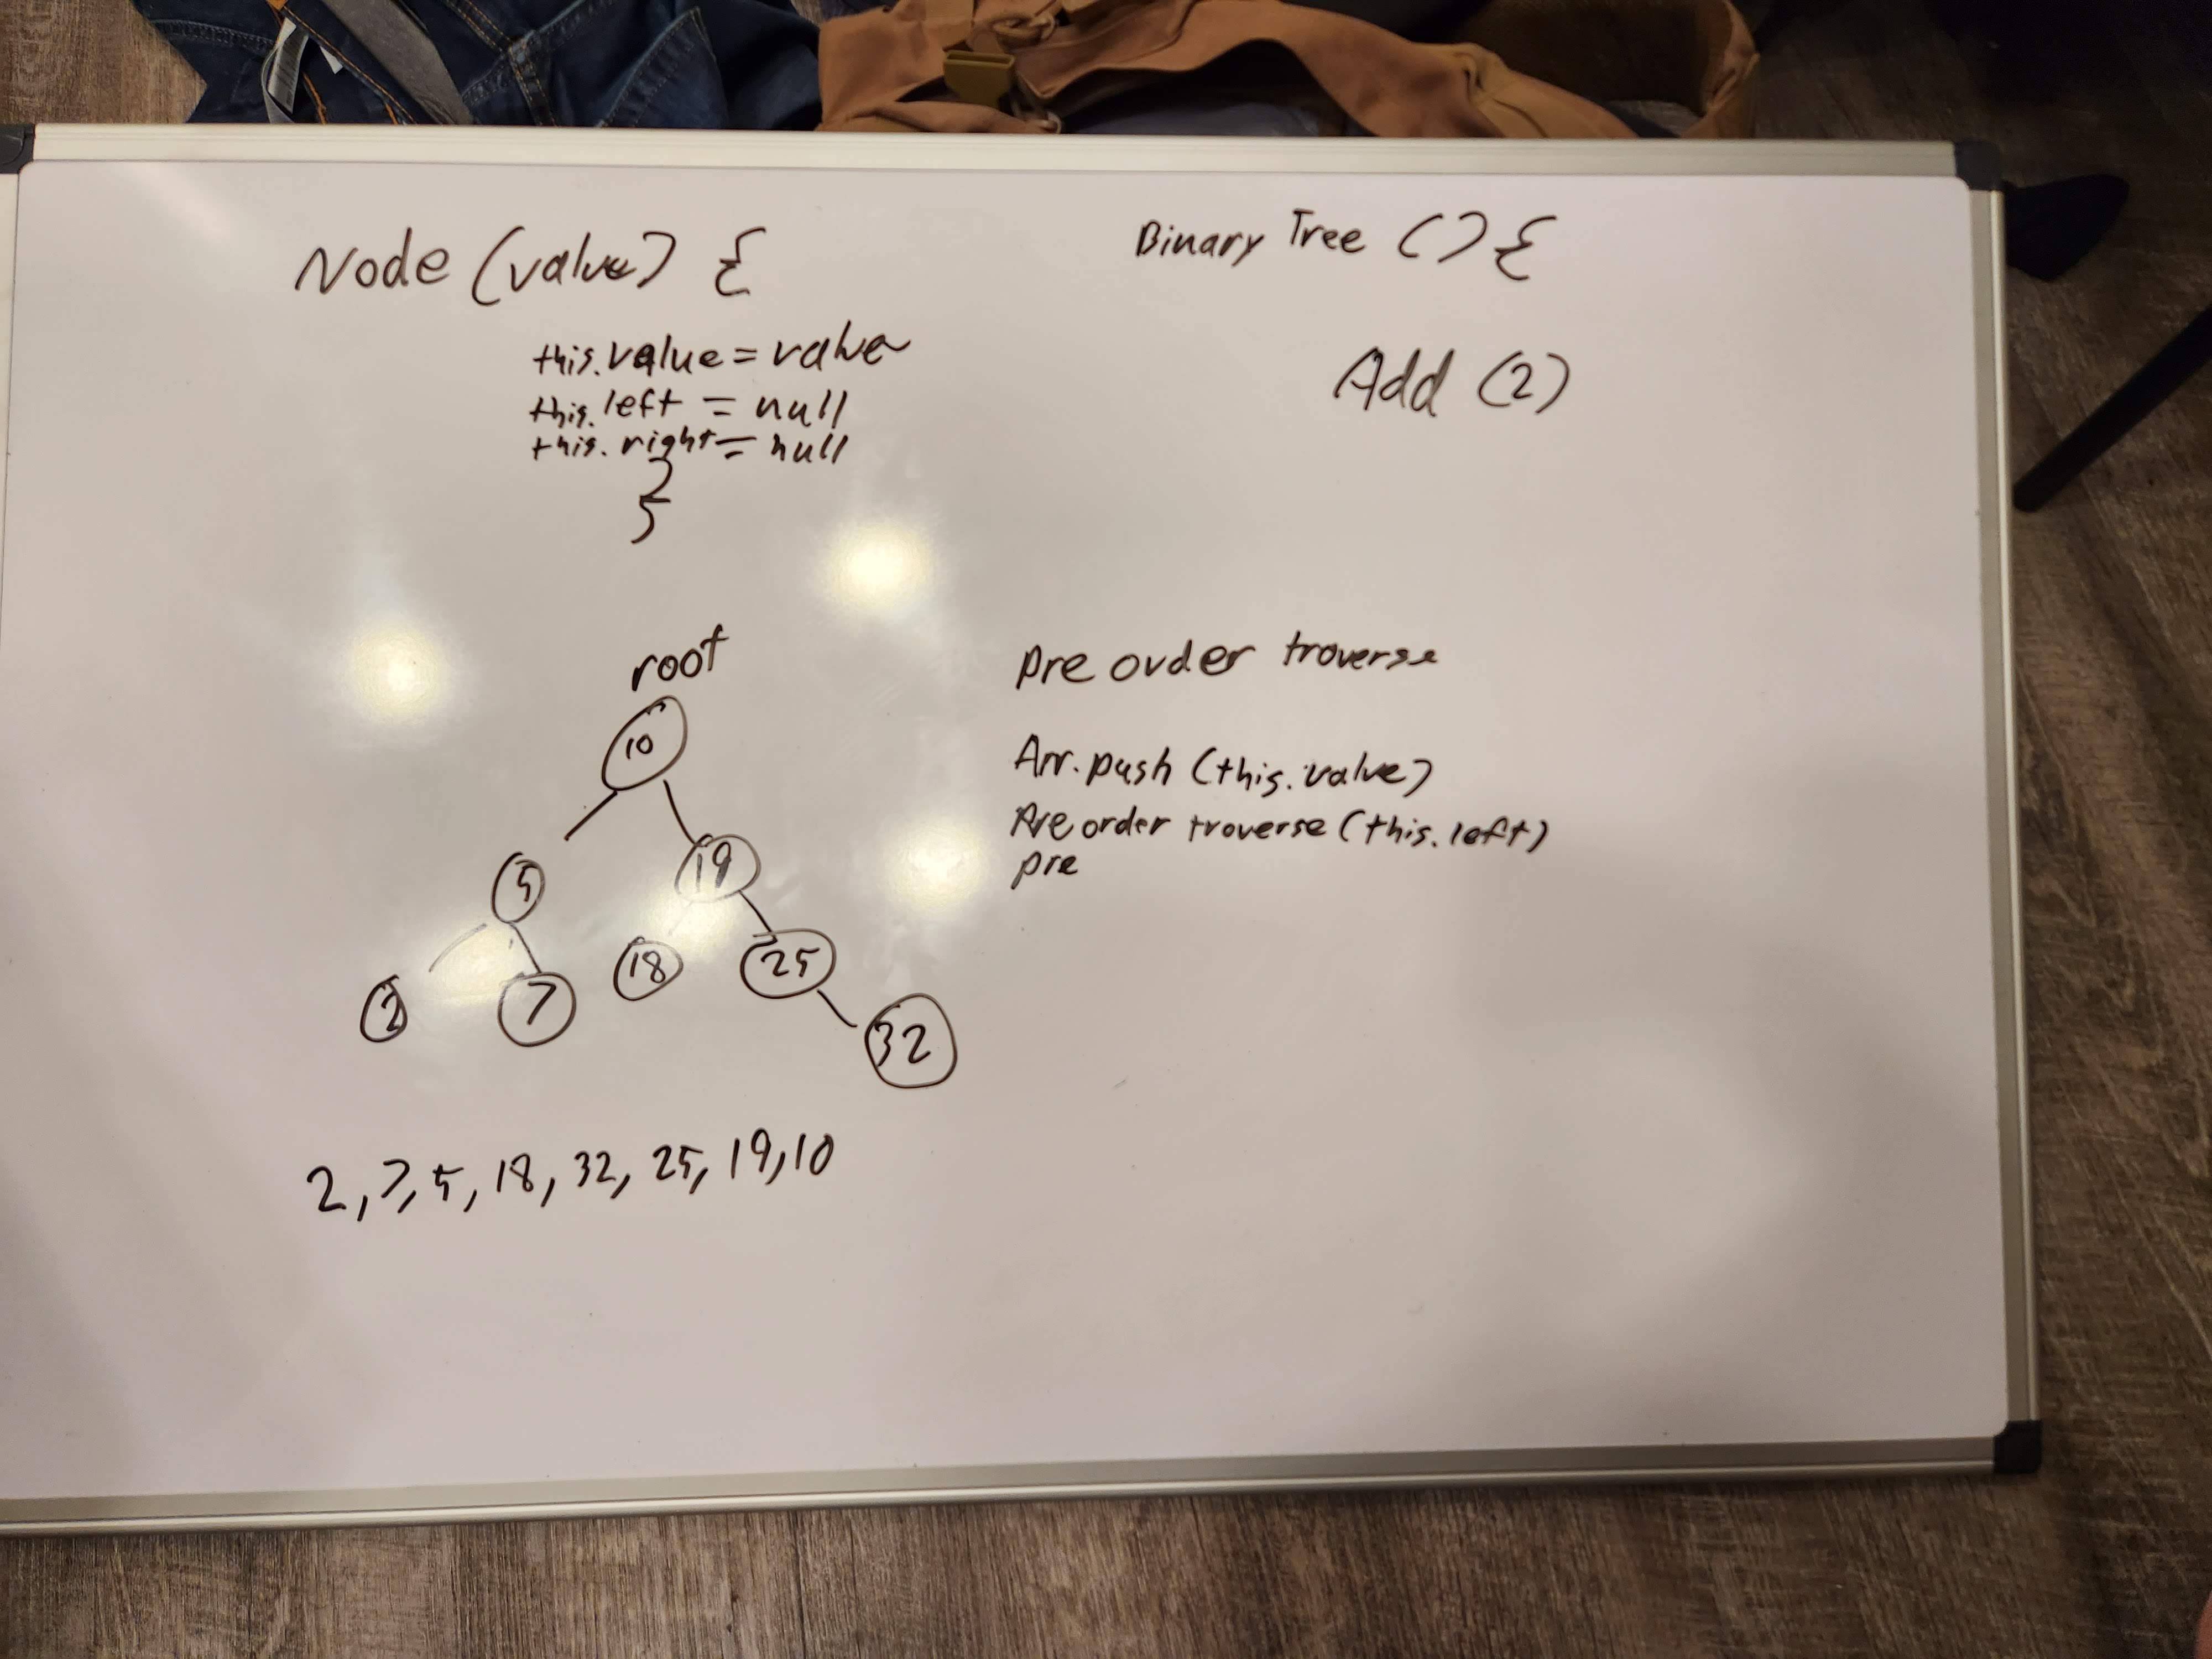 Node (value) {
this.value = value
this.left = null
this.right = null
}
Binary Tree () {
Add (2)
root
10
5
19
2
7
18
25
32
pre order traverse
Arr.push (this.value)
Pre order traverse (this.left)
pre
2, 7, 5, 18, 32, 25, 19, 10